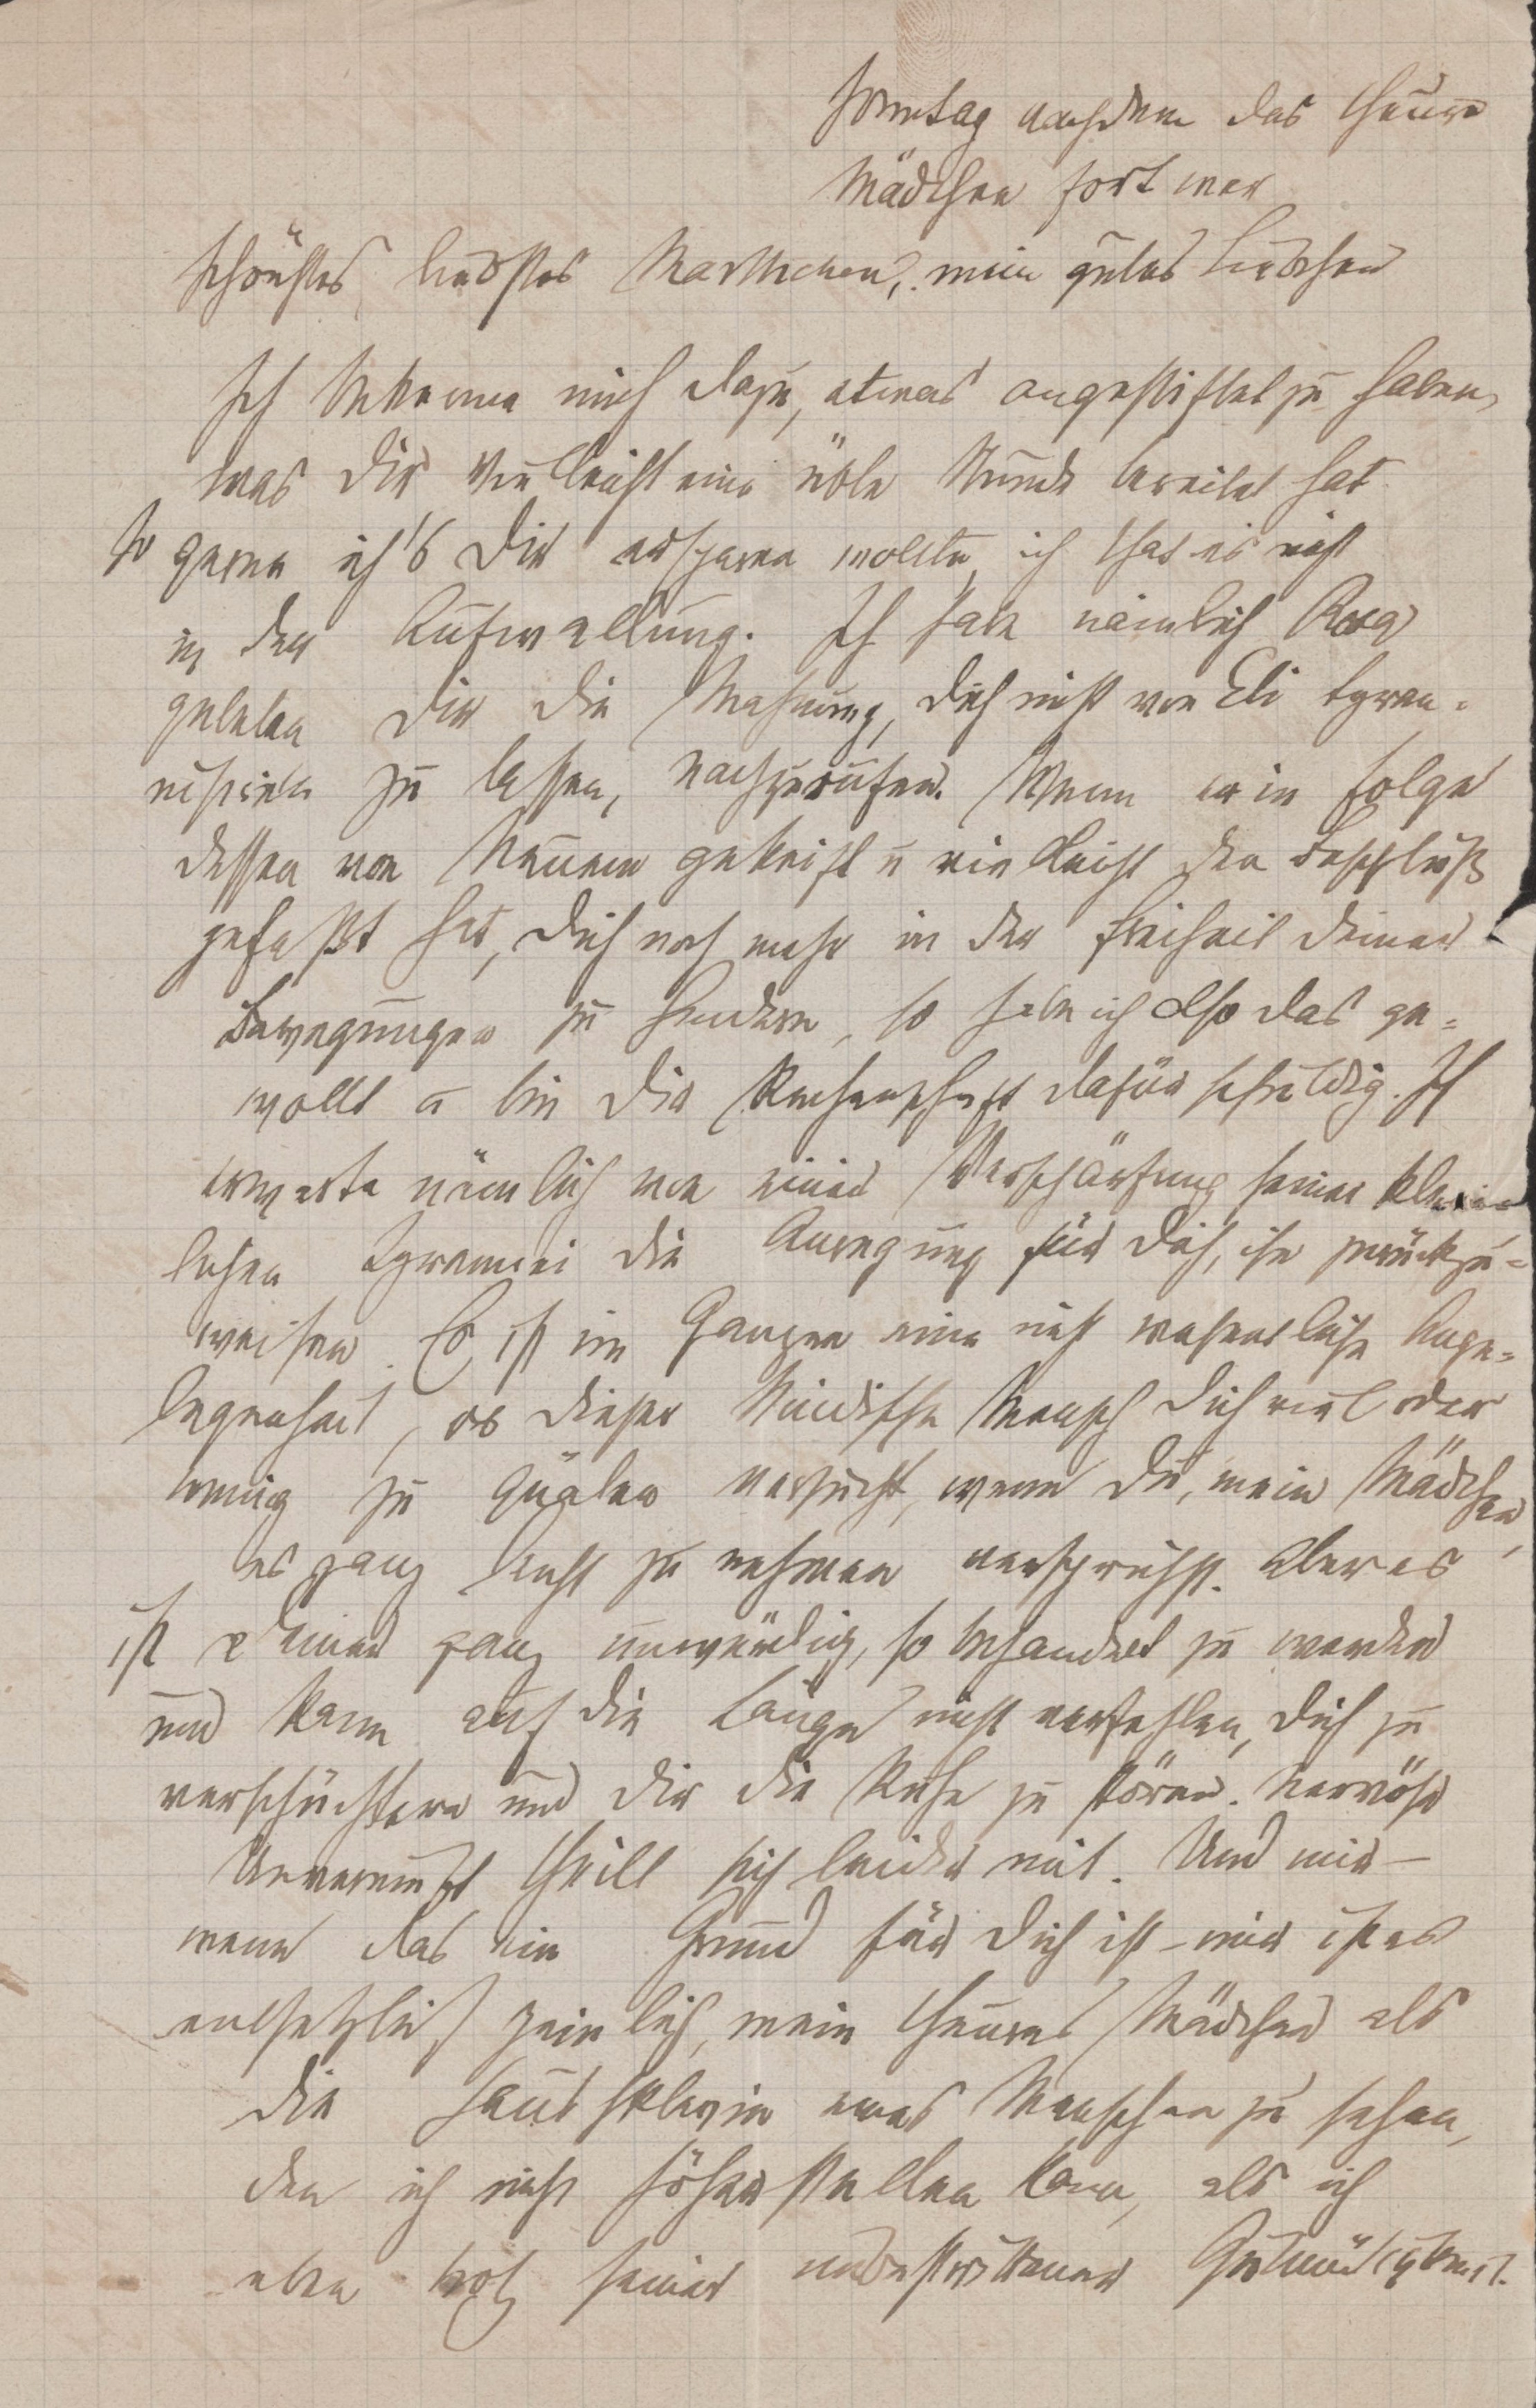 Sonntag nachdem das theure
Mädchen fort war
Schönstes, liebstes Marthchen, mein gutes Liebchen
Ich bekenne mich dazu, etwas angestiftet zu haben,
was Dir vielleicht eine üble Stunde bereitet hat.
So gerne ich's Dir ersparen wollte, ich that es nicht
in der Aufwallung. Ich habe nämlich Rosa
gebeten Dir die Mahnung, Dich nicht von Eli tyran-
nisieren zu lassen, nachzurufen. Wenn er in Folge
dessen von Neuem gekeift u vielleicht den Beschluß
gefaßt hat, Dich noch mehr in der Freiheit Deiner
Bewegungen zu hindern, so habe ich also das ge-
wollt u bin Dir Rechenschaft dafür schuldig. Ich
erwarte nämlich von einer Verschärfung seiner klein-
lichen Tyrannei die Anregung für Dich, ihn zurückzu-
weisen. Es ist im Ganzen eine nicht wesentliche Ange-
legenheit, ob dieser kindische Mensch Dich viel oder
wenig zu quälen versucht, wenn Du, mein Mädchen,
es ganz leicht zu nehmen versprichst. Aber es
ist Deiner ganz unwürdig, so behandelt zu werden
und kann auf die Länge nicht verfehlen, Dich zu
verschüchtern und Dir die Ruhe zu stören. Nervöse
Unvernunft theilt sich leider mit. Und mir –
wenn das ein Grund für Dich ist – mir ist es
entsetzlich peinlich, mein theures Mädchen als
die Haussklavin eines Menschen zu sehen,
den ich nicht höher stellen kann, als ich
eben trotz seiner unbestrittenen Gutmütigkeit.